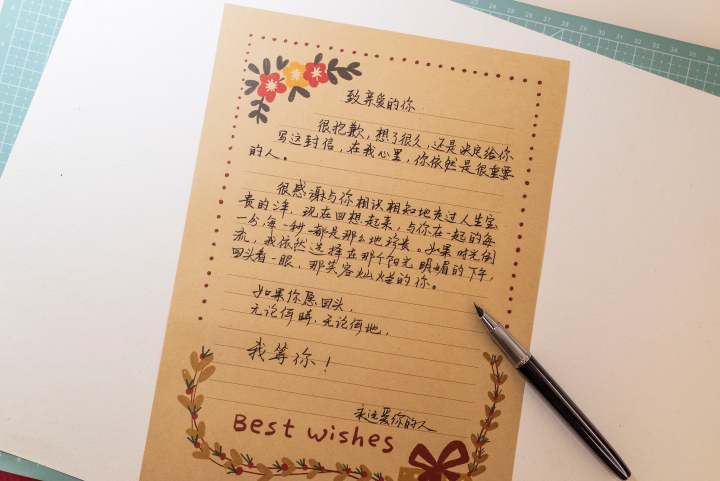 致亲爱的你
很抱歉，想了很久，还是决定给你
写这封信，在我心里，你依然是很重要
的人。
很感谢与你相识相知地走过人生宝
贵的 年，现在回想起来，与你在一起的每
一分，每一秒都是那么地珍贵。如果时光倒
流，我依然选择在那个阳光明媚的下午，
回头看一眼，那笑容灿烂的你。
如果你愿回头，
无论何时，无论何地，
我等你！
永远爱你的人
Best wishes